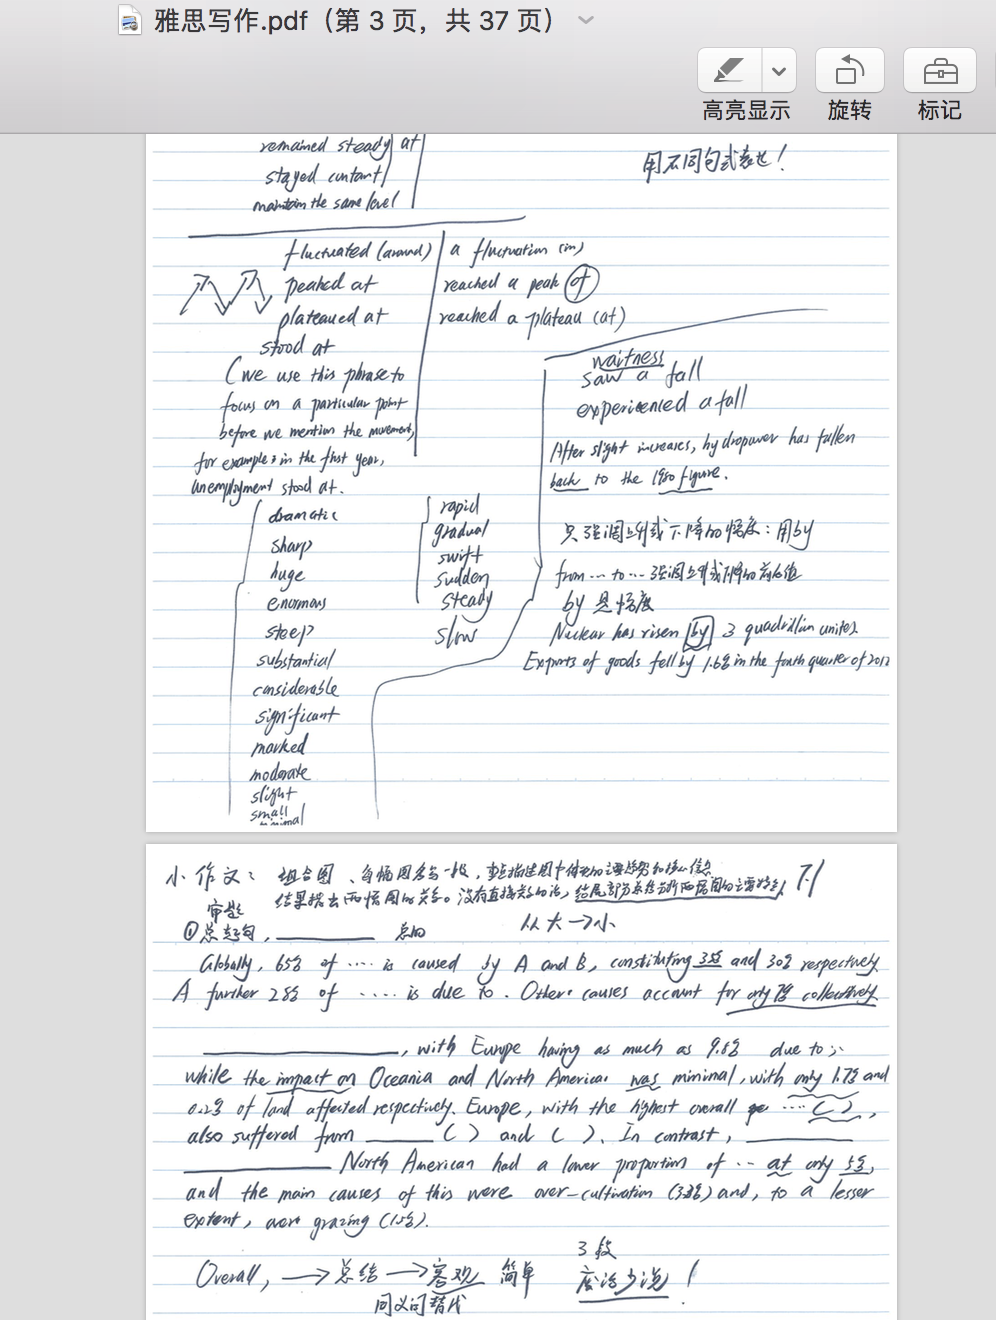 雅思写作.pdf（第 3 页，共 37 页）
高亮显示
旋转
标记
remained steady at
stayed contant
maintain the same level
用不同句式表达！
fluctuated (around)
peaked at
plateaued at
stood at
(we use this phrase to
focus on a particular point
before we mention the movement,
for example: in the first year,
unemployment stood at.
a fluctuation (in)
reached a peak of
reached a plateau (at)
waitness
saw a fall
experienced a fall
After slight increases, hydropower has fallen
back to the 1980 figure.
只强调上升或下降的幅度：用by
from … to … 强调上升或下降的前后值
by 是幅度
Nuclear has risen by 3 quadrillion unites.
Exports of goods fell by 1.6% in the fouth quarter of 2012
dramatic
sharp
huge
enormous
steep
substantial
considerable
significant
marked
moderate
slight
small
minimal
rapid
gradual
swift
sudden
steady
slow
小作文：组合图、每幅图各写一段，
结尾部分
7.1
审题
①总起句，
从大→小
Globally, 65% of …. is caused by A and B, constituting 35% and 30% respectively.
A further 28% of ….. is due to . Other causes account for only 7% collectively.
, with Europe having as much as 9.8% due to ;
while the impact on Oceania and North America was minimal, with only 1.7% and
0.2% of land affected respectively. Europe, with the highest overall … ( ),
also suffered from ( ) and ( ). In contrast,
North American had a lower proportion of … at only 5%,
and the main causes of this were over-cultivation (3.3%) and, to a lesser
extent, were grazing (1.5%).
Overall, → 总结 → 客观 简单
同义词替代
3段
废话少说！